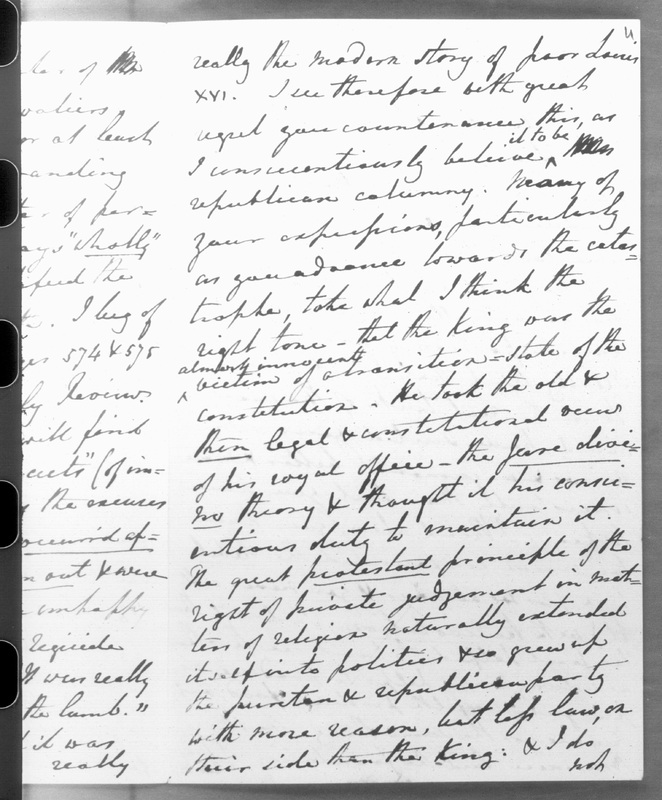 4
ter of
vatiers
or at least
randing
ter of par=
ays "wholly"
I beg of
574 & 575
ly Review.
will find
facts" (of im=
y the excuses
out & were
unhappy
regicide
It was really
the lamb."
it was
really
really the modern story of poor Louis
XVI. I see therefore with great
regret you countenance this, as
I conscientiously believe it to be,
republican calumny. Many of
your expressions, particularly
as you advance towards the catas=
trophe, take what I think the
right tone – that the King was the
almost innocent
victim of a transition-state of the
constitution. He took the old &
then legal & constitutional view
of his royal office – the Jure divi=
no theory & thought it his consci=
entious duty to maintain it.
The great protestant principle of the
right of private judgement in mat=
ters of religion naturally extended
itself into politics & so grew up
the puritan & republican party
with more reason, but less law, on
their side than the King: & I do
not